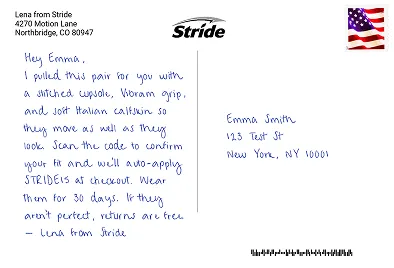 Lena from Stride
4270 Motion Lane
Northbridge, CO 80947
Stride
Hey Emma,
I pulled this pair for you with
a stitched cupsole, Vibram grip,
and soft Italian calfskin so
they move as well as they
look. Scan the code to confirm
your fit and we'll auto-apply
STRIDE15 at checkout. Wear
them for 30 days. If they
aren't perfect, returns are free
– Lena from Stride
Emma Smith
123 Test St
New York, NY 10001